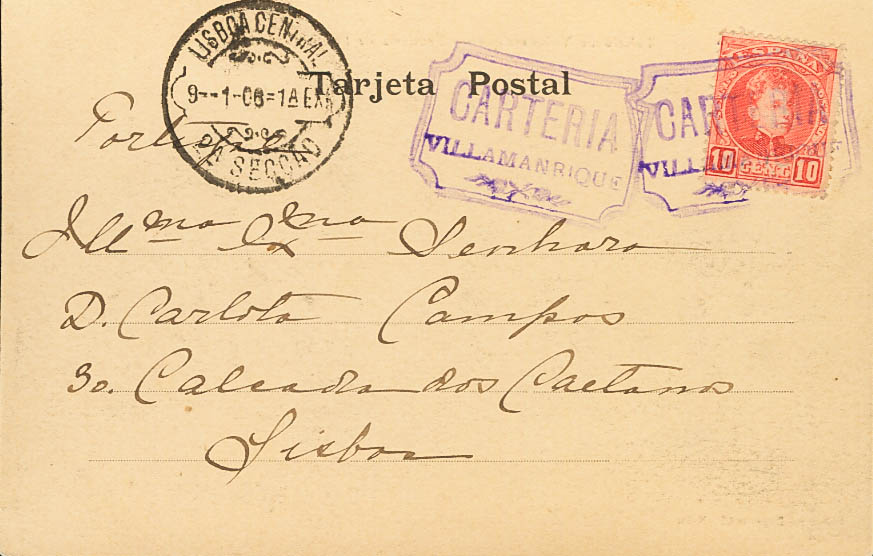 LISBOA CENTRAL
9--1-06=1A EXP
2A SECÇÃO
Tarjeta Postal
CARTERIA
VILLAMANRIQUE
ESPAÑA
10 CENT. 10
Portugal
Illma Exma Senhora
D. Carlota Campos
30. Calçada dos Caetanos
Lisboa